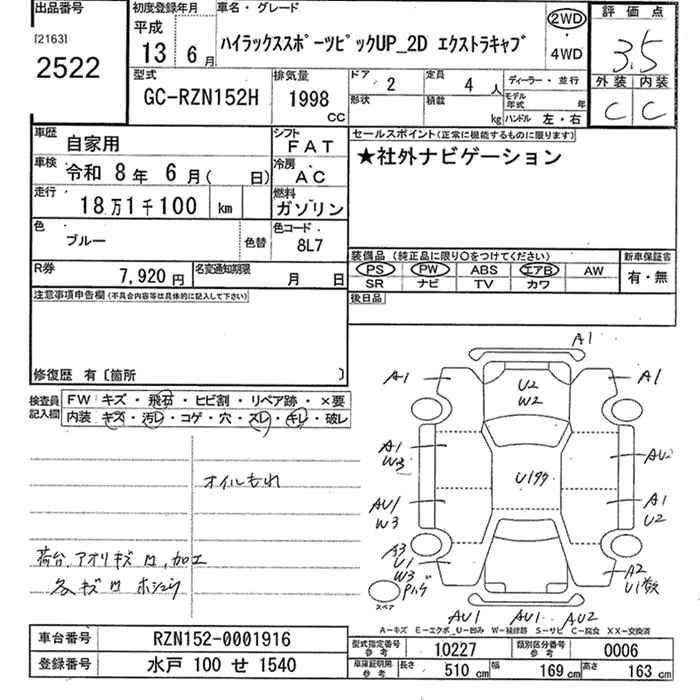 出品番号
[2163]
2522
初度登録年月
平成
13 6月
車名・グレード
ハイラックススポーツピックUP_2D エクストラキャブ
2WD
・
4WD
評価点
3.5
外装 内装
C C
型式
GC-RZN152H
排気量
1998
CC
ドア
2
定員
4 人
形状
積載
kg
ディーラー・並行
モデル年式 年
ハンドル 左・右
車歴
自家用
シフト
FAT
車検
令和 8年 6月( 日)
冷房
AC
走行
18万1千100 km
燃料
ガソリン
色
ブルー
色替
色コード
8L7
R券
7,920円
名変通知期限
月 日
セールスポイント(正常に機能するものに限ります)
★社外ナビゲーション
装備品 (純正品に限り○をつけてください)
PS PW ABS エアB AW
SR ナビ TV カワ
新車保証書
有・無
後日品
注意事項申告欄(不具合内容等は具体的に記入して下さい)
修復歴 有〔箇所 〕
検査員記入欄
FW キズ・飛石・ヒビ割・リペア跡・×要
内装 キズ・汚レ・コゲ・穴・スレ・キレ・破レ
オイルもれ
荷台、アオリキズ凹、加工
各キズ凹 ホシュウ
A1
A1
A1
U2
W2
A1
W3
AU2
U1多々
AU1
W3
A1
U2
A3
U1
W3
Pハゲ
A2
U1多数
スペア
AU1 AU1 AU2
A-キズ E-エクボ U-凹み W-補修跡 S-サビ C-腐食 XX-交換済
車台番号
RZN152-0001916
登録番号
水戸 100 せ 1540
型式指定番号
参考
10227
類別区分番号
参考
0006
車庫証明用
参考
長さ
510 cm
幅
169 cm
高さ
163 cm